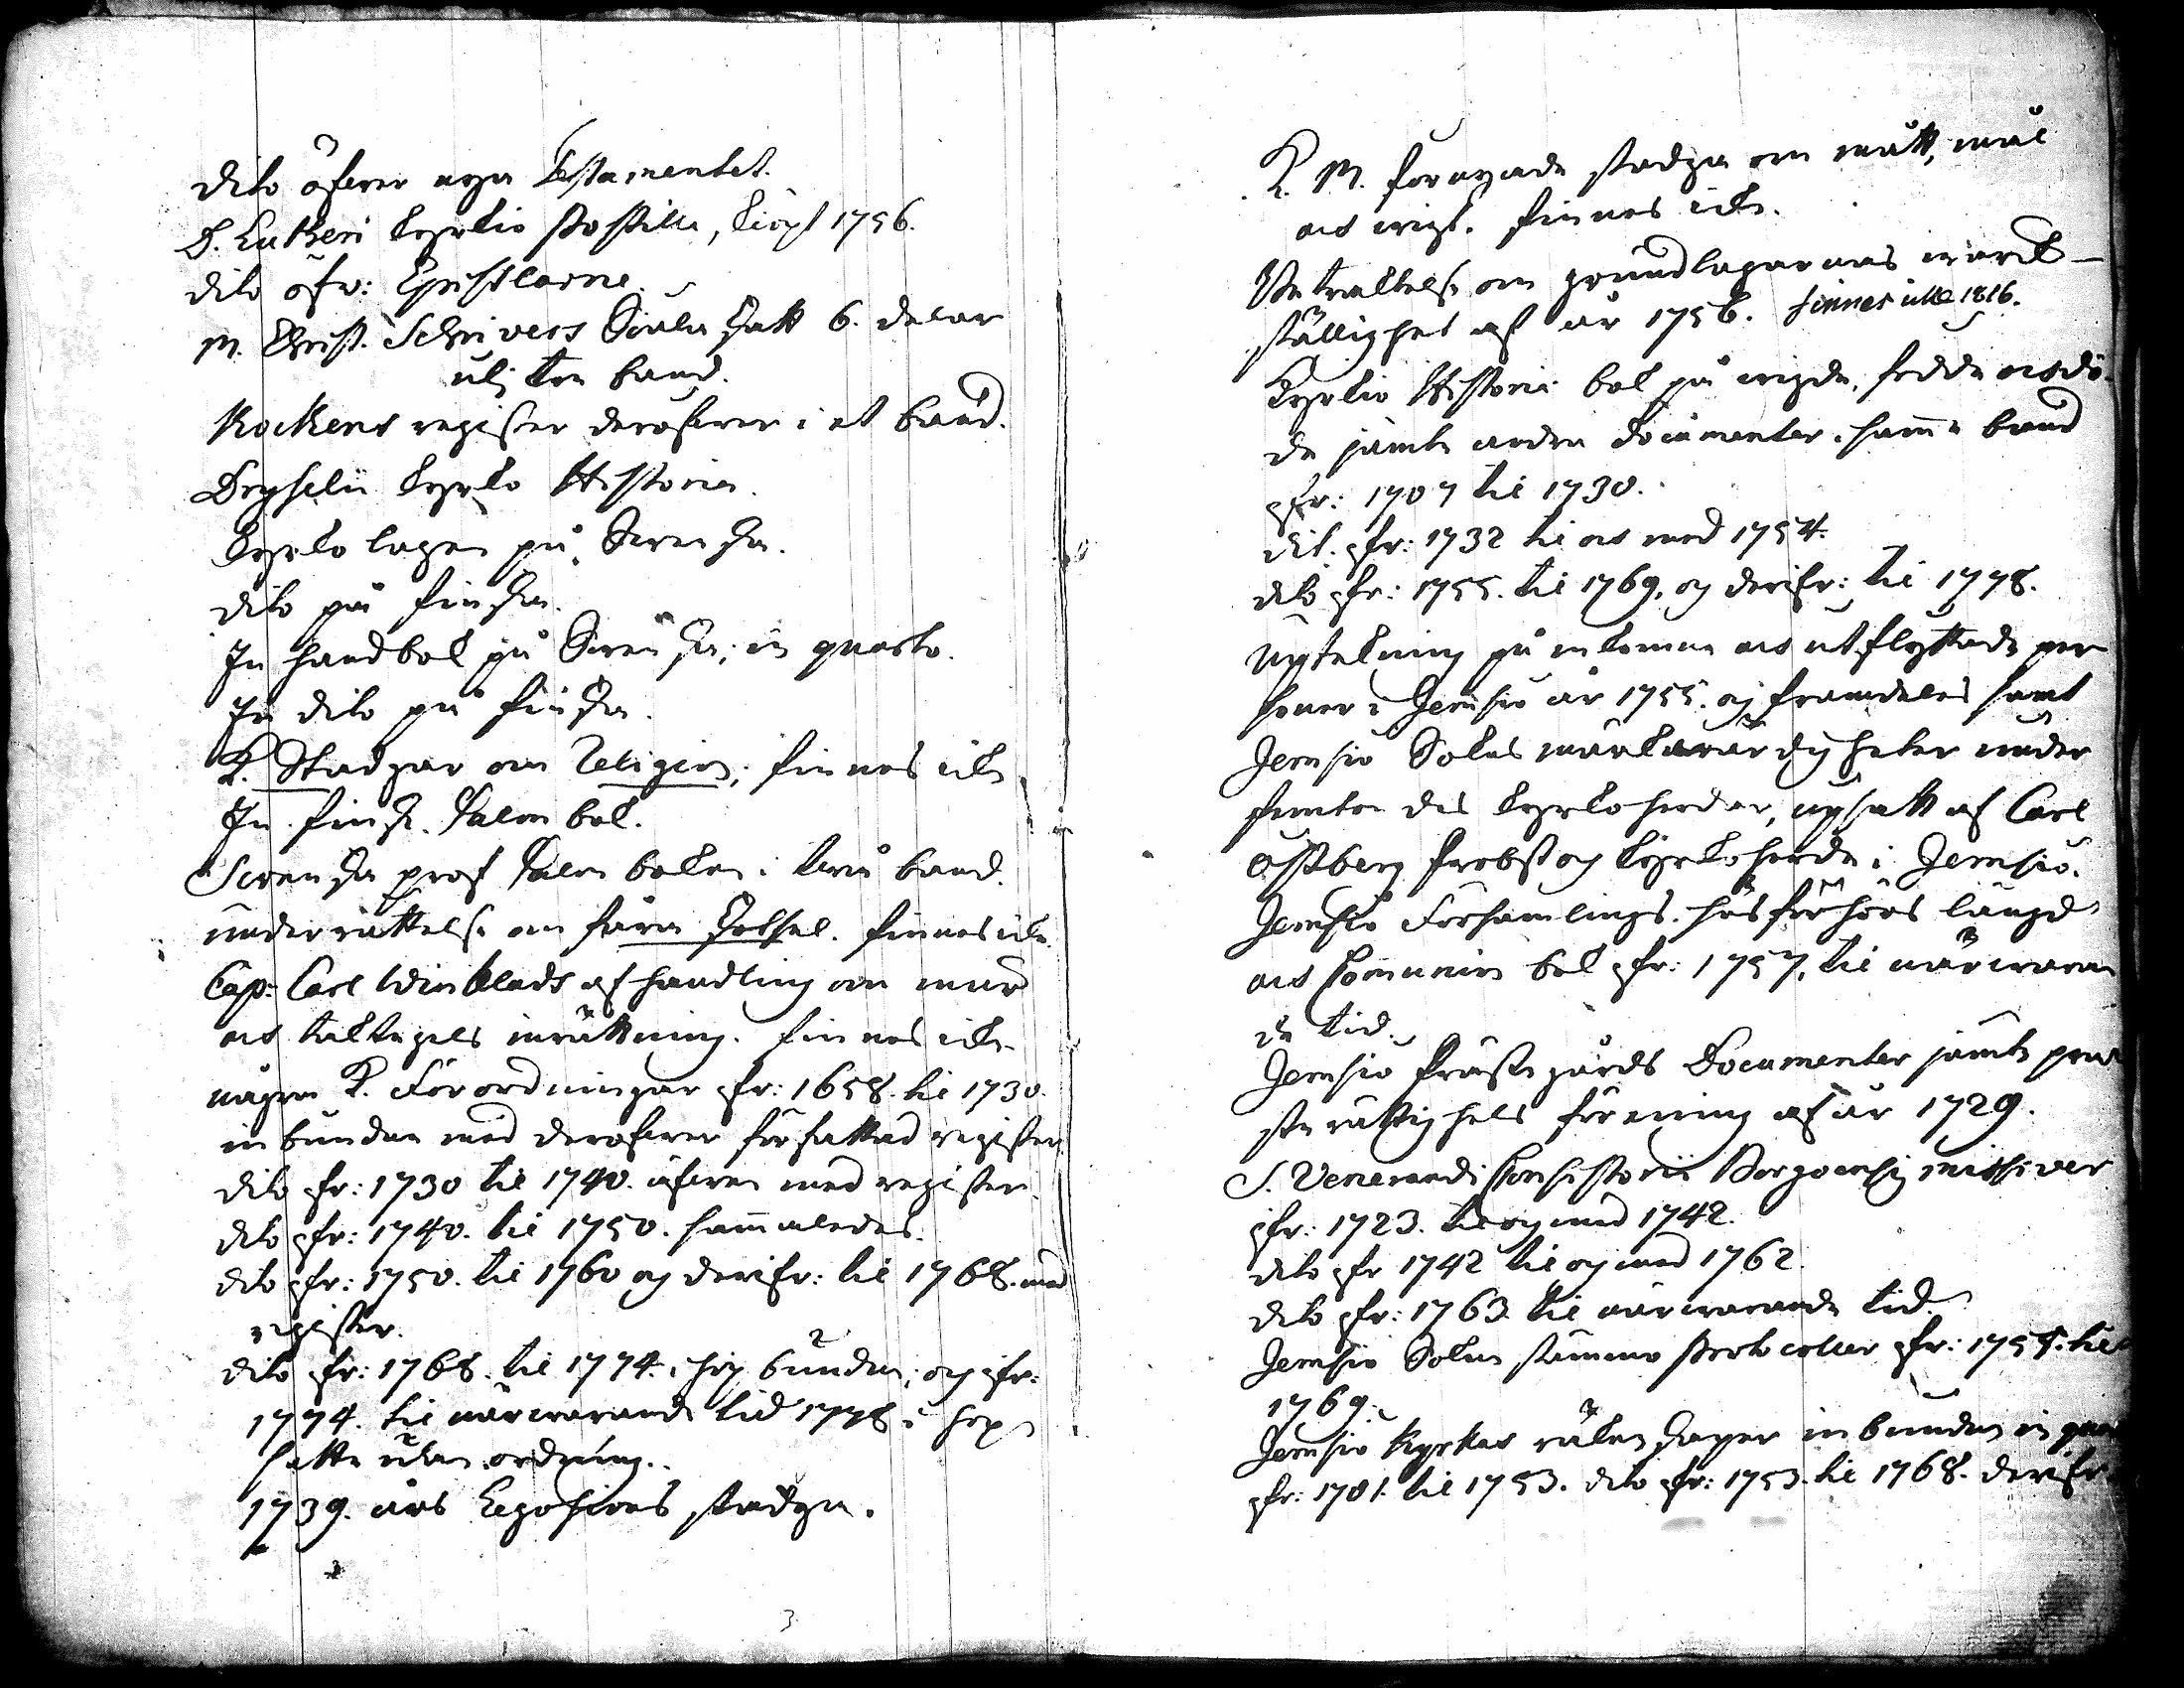 dito öfwer nya Testamentet.
D. Lutheri kyrkio Postilla, kiöpt 1756.
dito öfw: Epistlarne.
M. Christ. Schrivers Siäla Skatt 6. delar
uti tre band.
Kockens register deröfwer i et band.
Dryselii kyrko Historia.
kyrko lagen på Swenska.
dito på finska.
En handbok på Swenska; in quarto.
En dito på finska.
K. Stadgar om Religion; finnes icke
En finsk Psalm bok.
Swenska prof Psalm boken i twå band.
underrättelse om fåra skötsel. finnes icke.
Cap: Carl Winblads afhandling om mur
och taktegels inrättning. finnes icke.
någre K. Förordningar ifr: 1658. til 1730.
inbundne med deröfwer författad register
dito ifr: 1730 til 1740. äfwen med register.
dito ifr: 1740. til 1750. sammaledes.
dito ifr: 1750. til 1760 och derifr: til 1768. med
register.
dito ifr: 1768. til 1774. ihopbundne; och ifr:
1774. til närwarande tid 1778 i hop
satte utan ordning.
1739. års Legohions stadga.
3
K. M. förnyade stadga om mått, mål
och wigt. finnes icke.
Berättelse om grundlagarnas wärk-
ställighet af år 1756. finnes icke 1816.
Kyrkio Historie bok på wigde, födde och dö-
de jämte andra documenter i samma band
ifr: 1707 til 1730.
dit. ifr: 1732 til och med 1754.
dito ifr: 1755. til 1769, och derifr: til 1778.
Upteckning på inkomne och utflyttade per
soner i Jemsiö år 1755. och framdeles samt
Jemsiö Sokns märkwärdigheter under
femton des kyrkoherdar, upsatt af Carl
Ostberg Probst och kyrkoherde i Jemsiö.
Jemsiö Församlings husförhörs längd
och Communion bok ifr: 1757. til närwaran
de tid.
Jemsiö Prästegårds Documenter jämte prä
sterättighets förening af år 1729.
S. Venerandi Consistorii Borgoensis missiver
ifr: 1723. til och med 1742.
dito ifr 1742 til och med 1762.
dito ifr: 1763 til närwarande tid.
Jemsiö Sokne stämmo Protocoller ifr: 1754. til
1769.
Jemsiö Kyrkas räkenskaper inbundne in
ifr: 1701. til 1753. dito ifr: 1753. til 1768. derifr